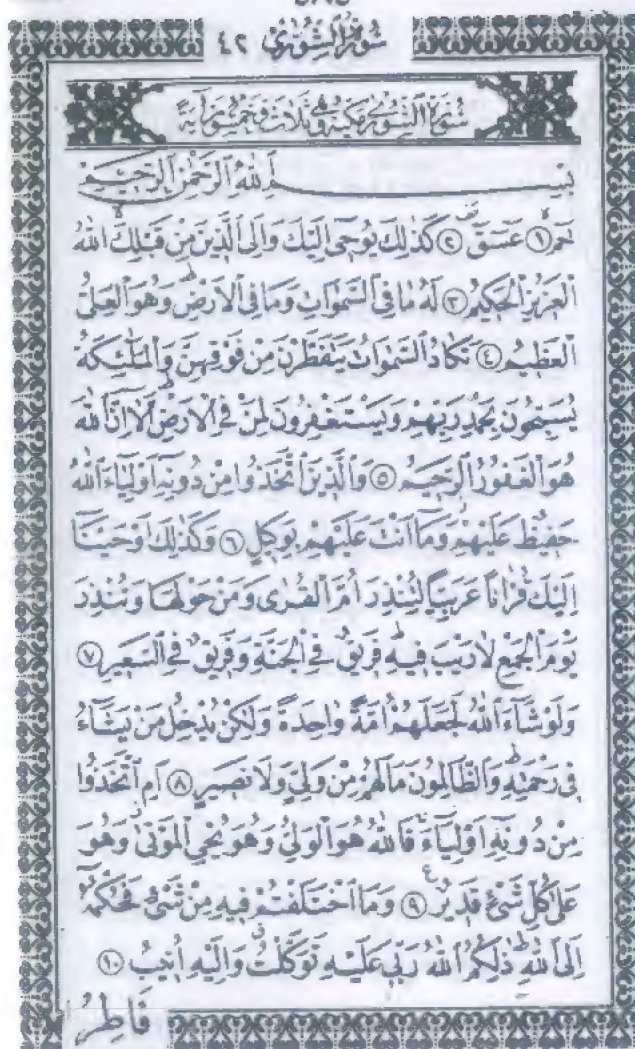 سُورَةُ الشُّورٰى ٤٢
سُورَةُ الشُّورٰى مَكِّيَّةٌ وَهِيَ ثَلَاثٌ وَخَمْسُونَ اٰيَةً
بِسْمِ اللّٰهِ الرَّحْمٰنِ الرَّحِيمِ
حٰمٓ ﴿١﴾ عٓسٓقٓ ﴿٢﴾ كَذٰلِكَ يُوحٖى اِلَيْكَ وَاِلَى الَّذٖينَ مِنْ قَبْلِكَ اللّٰهُ
الْعَزٖيزُ الْحَكٖيمُ ﴿٣﴾ لَهُ مَا فِى السَّمٰوَاتِ وَمَا فِى الْاَرْضِ وَهُوَ الْعَلِىُّ
الْعَظٖيمُ ﴿٤﴾ تَكَادُ السَّمٰوَاتُ يَتَفَطَّرْنَ مِنْ فَوْقِهِنَّ وَالْمَلٰٓئِكَةُ
يُسَبِّحُونَ بِحَمْدِ رَبِّهِمْ وَيَسْتَغْفِرُونَ لِمَنْ فِى الْاَرْضِ اَلَٓا اِنَّ اللّٰهَ
هُوَ الْغَفُورُ الرَّحٖيمُ ﴿٥﴾ وَالَّذٖينَ اتَّخَذُوا مِنْ دُونِهٖٓ اَوْلِيَٓاءَ اللّٰهُ
حَفٖيظٌ عَلَيْهِمْ وَمَٓا اَنْتَ عَلَيْهِمْ بِوَكٖيلٍ ﴿٦﴾ وَكَذٰلِكَ اَوْحَيْنَٓا
اِلَيْكَ قُرْاٰنًا عَرَبِيًّا لِتُنْذِرَ اُمَّ الْقُرٰى وَمَنْ حَوْلَهَا وَتُنْذِرَ
يَوْمَ الْجَمْعِ لَا رَيْبَ فٖيهِ فَرٖيقٌ فِى الْجَنَّةِ وَفَرٖيقٌ فِى السَّعٖيرِ ﴿٧﴾
وَلَوْ شَٓاءَ اللّٰهُ لَجَعَلَهُمْ اُمَّةً وَاحِدَةً وَلٰكِنْ يُدْخِلُ مَنْ يَشَٓاءُ
فٖى رَحْمَتِهٖ وَالظَّالِمُونَ مَا لَهُمْ مِنْ وَلِىٍّ وَلَا نَصٖيرٍ ﴿٨﴾ اَمِ اتَّخَذُوا
مِنْ دُونِهٖٓ اَوْلِيَٓاءَ فَاللّٰهُ هُوَ الْوَلِىُّ وَهُوَ يُحْيِ الْمَوْتٰى وَهُوَ
عَلٰى كُلِّ شَىْءٍ قَدٖيرٌ ﴿٩﴾ وَمَا اخْتَلَفْتُمْ فٖيهِ مِنْ شَىْءٍ فَحُكْمُهُٓ
اِلَى اللّٰهِ ذٰلِكُمُ اللّٰهُ رَبّٖى عَلَيْهِ تَوَكَّلْتُ وَاِلَيْهِ اُنٖيبُ ﴿١٠﴾
فَاطِرُ